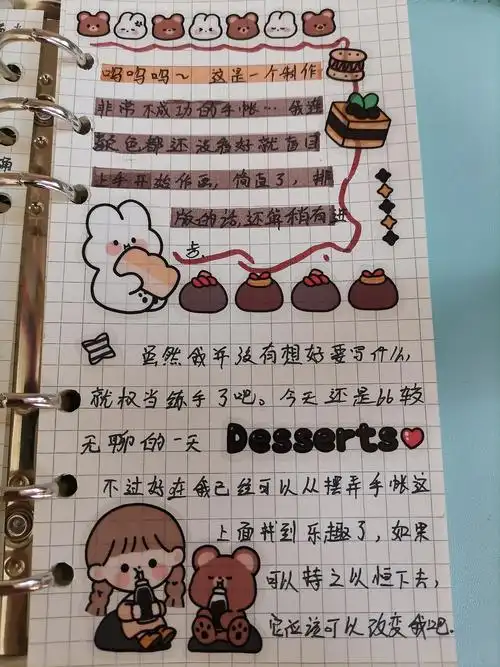 呜呜呜~ 这是一个制作
非常不成功的手帐… 我连
颜色都还没看好就盲目
上手开始作画,简直了,排
版的话还算稍有进
步.
虽然我并没有想好要写什么,
就权当练手了吧。今天还是bb较
无聊的一天
Desserts
不过好在我已经可以从摆弄手帐这
上面找到乐趣了,如果
可以持之以恒下去,
它应该可以改变我吧.